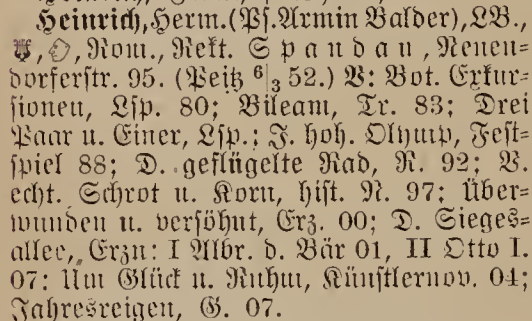 Heinrich, Herm. (Ps. Armin Balder), LB.,
Rom., Rekt. Spandau, Neuen=
dorferstr. 95. (Peitz 6|3 52.) V: Bot. Exkur=
sionen, Lsp. 80; Bileam, Tr. 83; Drei
Paar u. Einer, Lsp.; J. hoh. Olymp, Fest=
spiel 88; D. geflügelte Rad, R. 92; V.
echt. Schrot u. Korn, hist. R. 97; Über=
wunden u. versöhnt, Erz. 00; D. Sieges=
allee, Erzn: I Albr. d. Bär 01, II Otto I.
07: Um Glück u. Ruhm, Künstlernov. 04;
Jahresreigen, G. 07.